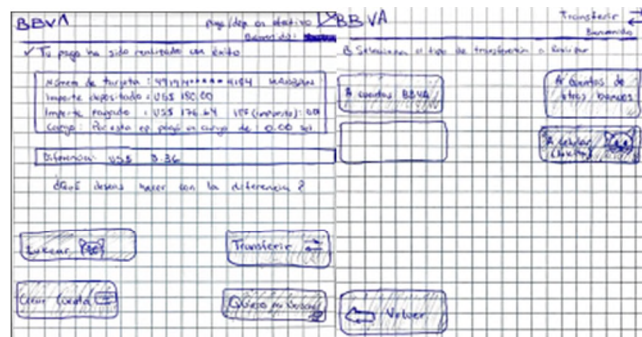 BBVA
pago/dep en efectivo
Bienvenido:
✓ Tu pago ha sido realizado con éxito
Número de tarjeta : 491914***** 4184
Importe depositado : US$ 180.00
Importe pagado : US$ 176.64 ITF (impuesto):
Cargo: Por esta op. pagó un cargo de : 0.00 sol
Diferencia: US$ 3.36
¿Qué deseas hacer con la diferencia?
Lukear
Transferir
Crear Cuenta
Quiero mi
BBVA
Transferir
Bienvenido
Selecciona el tipo de transferencia a realizar
A cuentas BBVA
A cuentas de
otros bancos
A celular
Volver